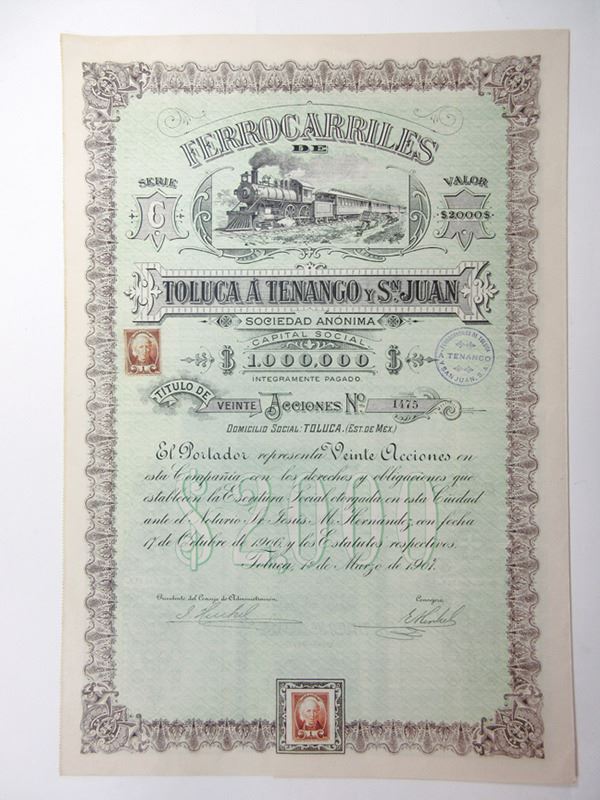 FERROCARRILES
DE
SERIE
C
VALOR
$2000$
TOLUCA Á TENANGO Y SN. JUAN
SOCIEDAD ANÓNIMA
CAPITAL SOCIAL
$ 1.000,000 $
INTEGRAMENTE PAGADO.
FERROCARRILES DE TOLUCA
A TENANGO
Y SAN JUAN, S.A.
TITULO DE VEINTE ACCIONES No. 1475
DOMICILIO SOCIAL: TOLUCA. (EST. DE MEX.)
El Portador representa Veinte Acciones en
esta Compañia con los derechos y obligaciones que
establecen la Escritura Social otorgada en esta Ciudad
ante el Notario Jesús M. Hernández, con fecha
17 de Octubre de 1906, y los Estatutos respectivos.
Toluca, 1º de Marzo de 1907.
$2000
Presidente del Consejo de Administración.
Consejero
Henkel
E Henkel